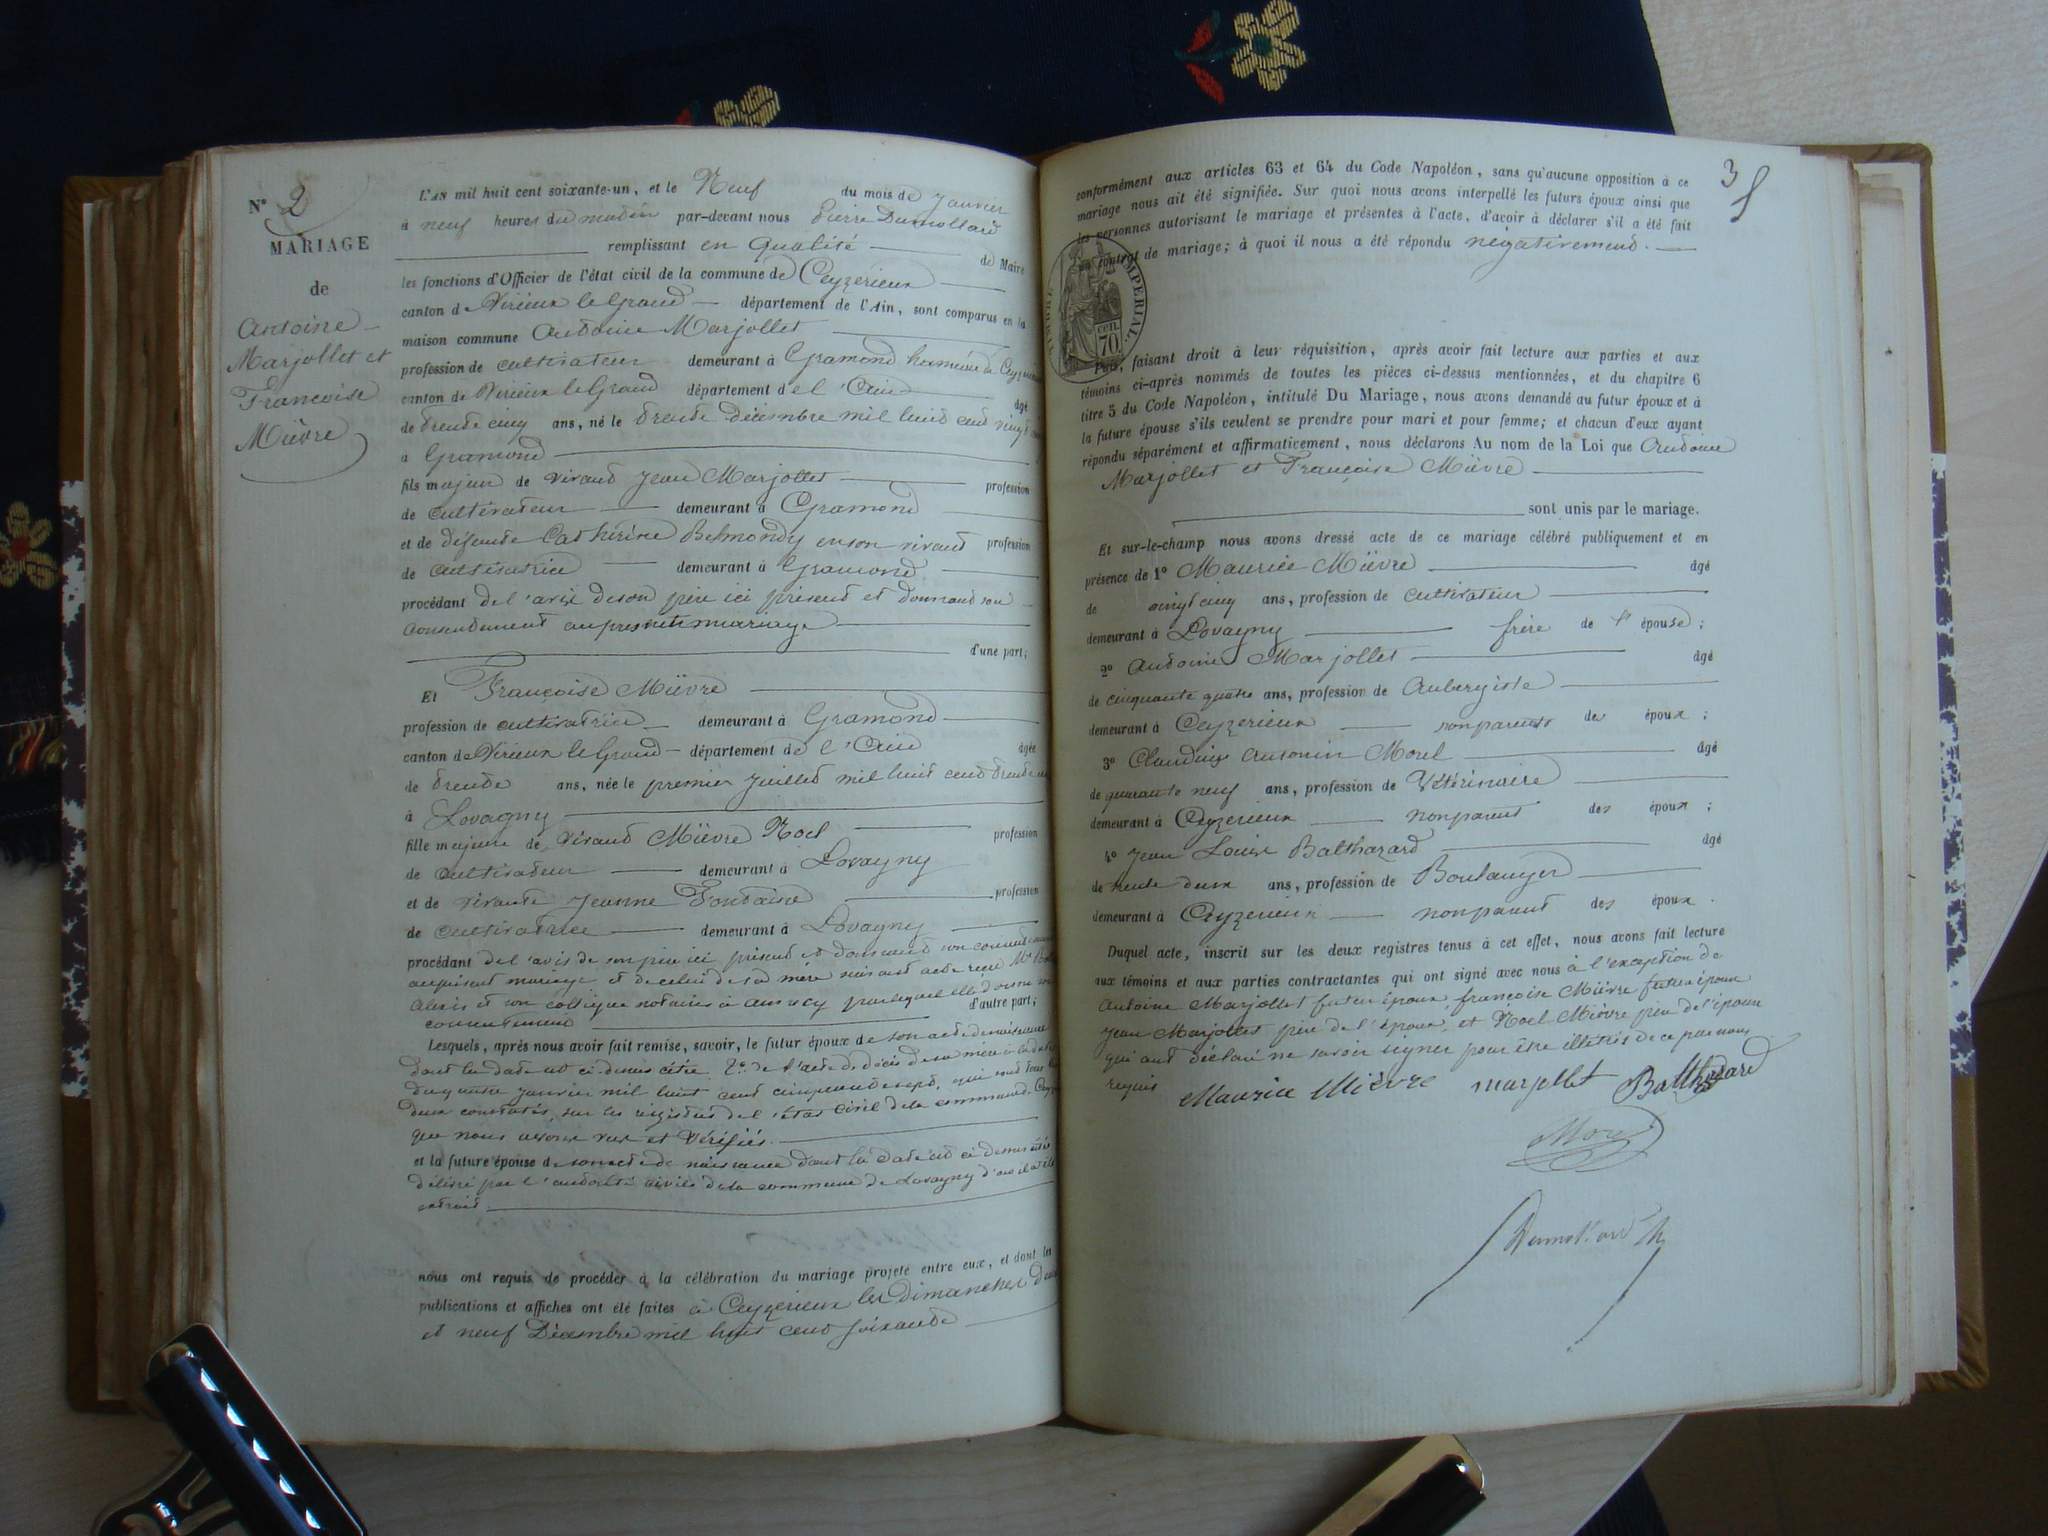 N° 2
MARIAGE
de
Antoine
Marjollet et
Françoise
Mièvre
L'AN mil huit cent soixante-un, et le Neuf du mois de Janvier
à neuf heures du matin par-devant nous Pierre Dumollard
remplissant en qualité de Maire
les fonctions d'Officier de l'état civil de la commune de Ceyzerieux
canton de Virieux le Grand département de l'Ain, sont comparus en la
maison commune Antoine Marjollet
profession de cultivateur demeurant à Gramond hameau de
canton de Virieux le Grand département de l'Ain âgé
de trente cinq ans, né le trente décembre mil huit cent vingt
à Gramond
fils majeur de vivant Jean Marjollet profession
de cultivateur demeurant à Gramond
et de défunte Catherine Belmondy en son vivant profession
de cultivatrice demeurant à Gramond
procédant de l'avis de son père ici présent et donnant son
consentement au présent mariage
d'une part;
Et Françoise Mièvre
profession de cultivatrice demeurant à Gramond
canton de Virieux le Grand département de l'Ain âgée
de trente ans, née le premier Juillet mil huit cent trente
à Lovagny
fille majeure de vivant Mièvre Noel profession
de cultivateur demeurant à Lovagny
et de vivante Jeanne Fontaine profession
de cultivatrice demeurant à Lovagny
procédant de l'avis de son père ici présent et donnant son
au présent mariage et de celui de sa mère suivant acte reçu Me
Alexis et son collègue notaires à Annecy par lequel elle donne son
consentement d'autre part;
Lesquels, après nous avoir fait remise, savoir, le futur époux de son acte de naissance
dont la date est ci-dessus citée 2° de l'acte de décès de sa mère à la date
du quatre janvier mil huit cent cinquante sept, qui sont tous
deux constatés sur les registres de l'état civil de la commune de
que nous avons vus et vérifiés.
et la future épouse de son acte de naissance dont la date est ci dessus citée
délivré par l'autorité civile de la commune de Lovagny d'où il a été
extrait
nous ont requis de procéder à la célébration du mariage projeté entre eux, et dont les
publications et affiches ont été faites à Ceyzerieux les dimanches deux
et neuf Décembre mil huit cent soixante
3
conformément aux articles 63 et 64 du Code Napoléon, sans qu'aucune opposition à ce
mariage nous ait été signifiée. Sur quoi nous avons interpellé les futurs époux ainsi que
les personnes autorisant le mariage et présentes à l'acte, d'avoir à déclarer s'il a été fait
un contrat de mariage; à quoi il nous a été répondu négativement.
TIMBRE IMPERIAL
70 cen.
Puis, faisant droit à leur réquisition, après avoir fait lecture aux parties et aux
témoins ci-après nommés de toutes les pièces ci-dessus mentionnées, et du chapitre 6
titre 5 du Code Napoléon, intitulé Du Mariage, nous avons demandé au futur époux et à
la future épouse s'ils veulent se prendre pour mari et pour femme; et chacun d'eux ayant
répondu séparément et affirmativement, nous déclarons Au nom de la Loi que Antoine
Marjollet et Françoise Mièvre
sont unis par le mariage.
Et sur-le-champ nous avons dressé acte de ce mariage célébré publiquement et en
présence de 1° Maurice Mièvre âgé
de vingt cinq ans, profession de cultivateur
demeurant à Lovagny frère de l' épouse;
2° Antoine Marjollet âgé
de cinquante quatre ans, profession de Aubergiste
demeurant à Ceyzerieux non parent des époux;
3° Claudius Antonin Morel âgé
de quarante neuf ans, profession de Vétérinaire
demeurant à Ceyzerieux non parent des époux;
4° Jean Louis Balthazard âgé
de trente deux ans, profession de Boulanger
demeurant à Ceyzerieux non parent des époux.
Duquel acte, inscrit sur les deux registres tenus à cet effet, nous avons fait lecture
aux témoins et aux parties contractantes qui ont signé avec nous à l'exception de
Antoine Marjollet futur époux, françoise Mièvre future épouse
Jean Marjollet père de l'époux, et Noel Mièvre père de l'épouse
qui ont déclaré ne savoir signer pour être illettrés de ce par nous
requis
Maurice Mièvre marjollet Balthazard
Morel
Dumollard